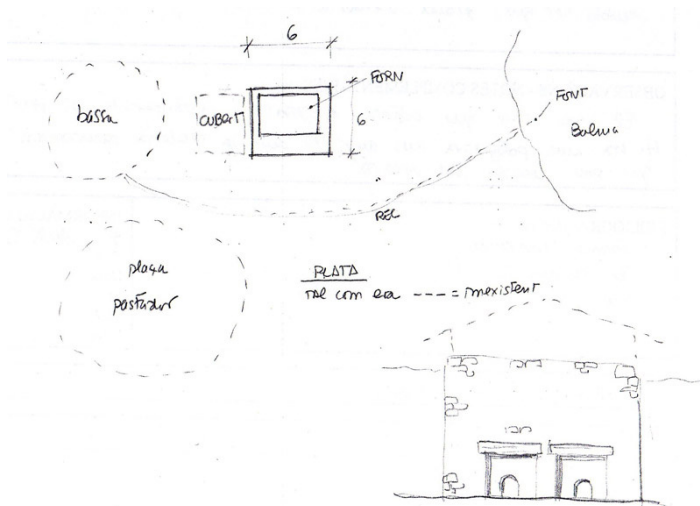 6
FORN
6
bassa
CUBERT
FONT
Balma
REC
plaça
pastador
PLANTA
TAL com era ---- = inexistent